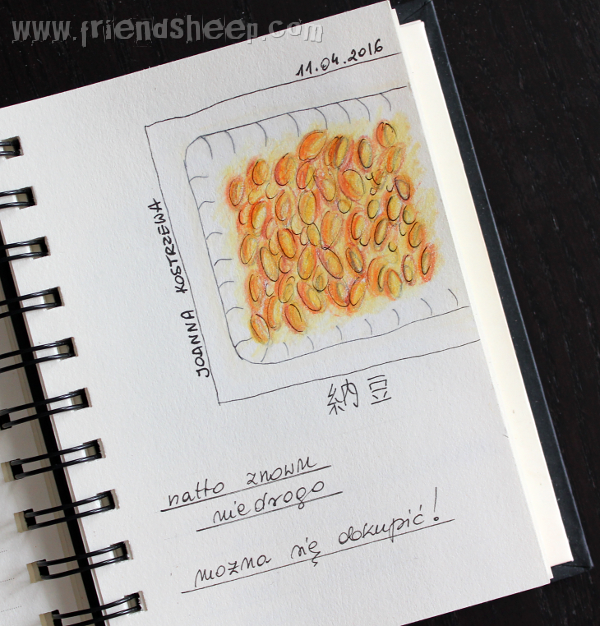 www.friendsheep.com
11.04.2016
JOANNA KOSTRZEWA
納豆
natto znowu
niedrogo
można się dokupić!